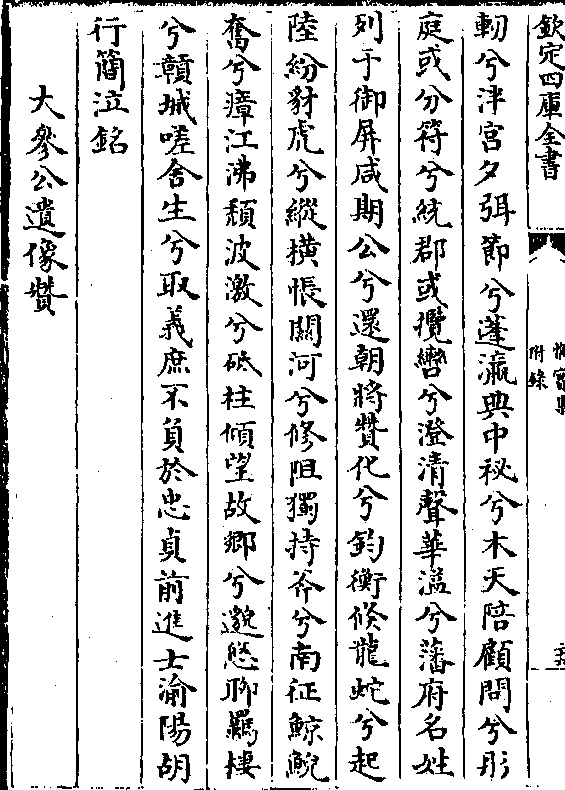 欽定四庫全書
附錄
軔兮泮宮夕弭節兮蓬瀛典中秘兮木天陪顧問兮彤
庭或分符兮統郡或攬轡兮澄清聲華溢兮藩府名姓
列于御屏咸期公兮還朝將贊化兮鈞衡倐龍蛇兮起
陸紛豺虎兮縱橫悵關河兮修阻獨持斧兮南征鯨鯢
奮兮瘴江沸頽波激兮砥柱傾望故鄉兮邈悠聊羈棲
兮贛城嗟舍生兮取義庶不負於忠貞前進士渝陽胡
行簡泣銘
大參公遺像贊